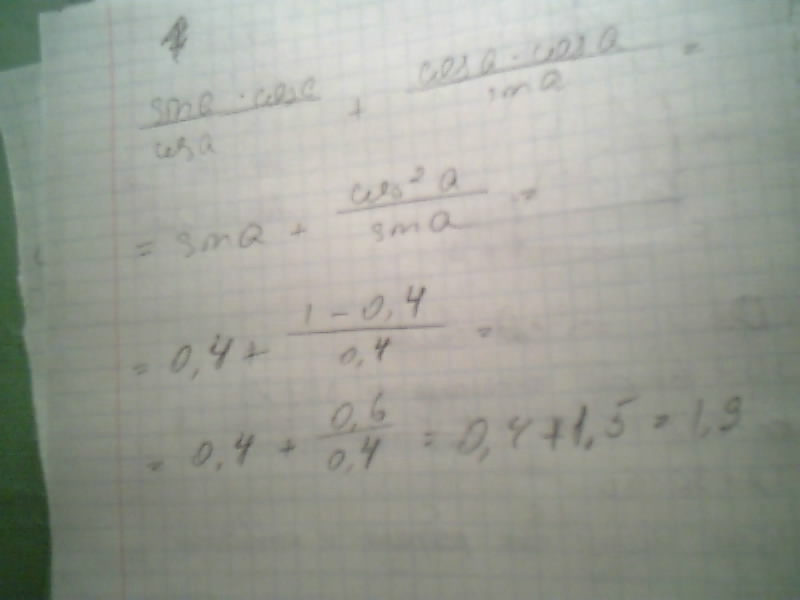 1
sin a · cos a / cos a + cos a · cos a / sin a =
= sin a + cos² a / sin a =
= 0,4 + 1 - 0,4 / 0,4 =
= 0,4 + 0,6 / 0,4 = 0,4 + 1,5 = 1,9